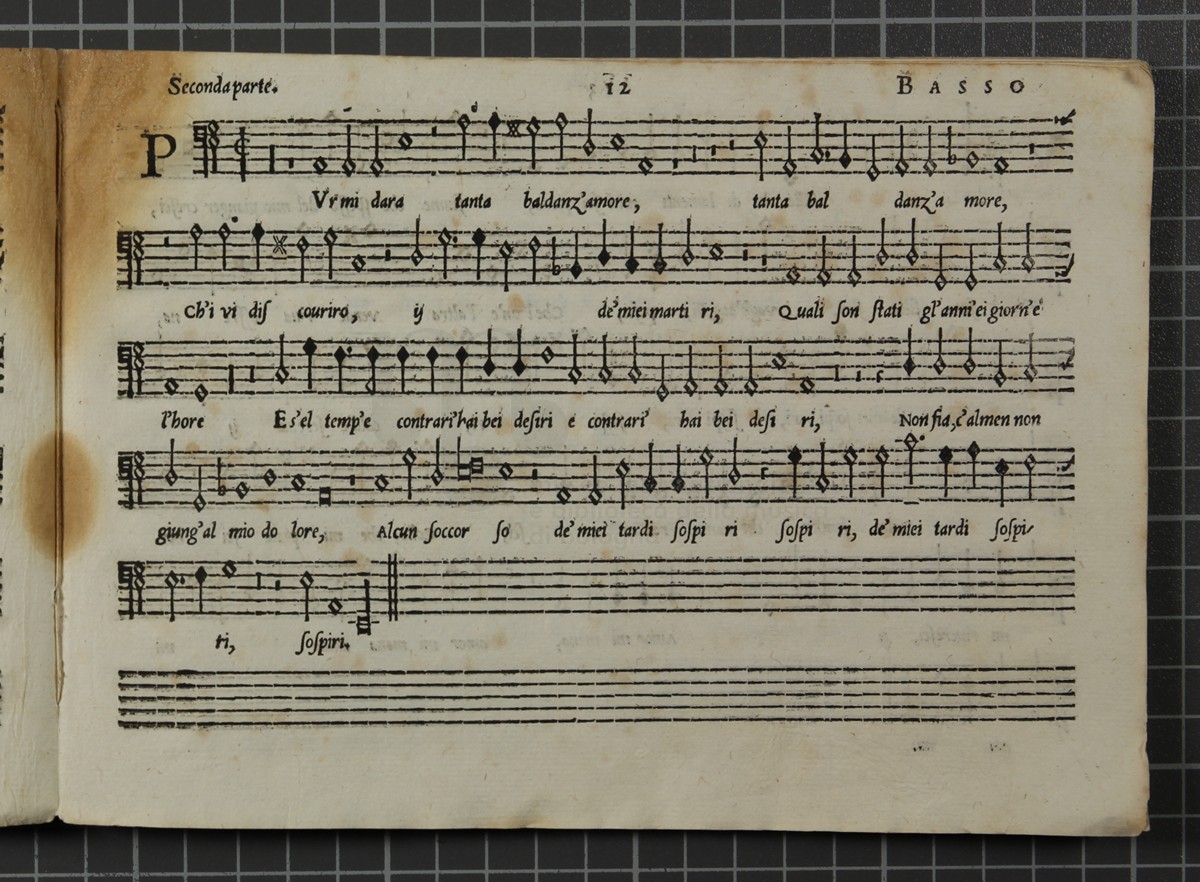 Seconda parte. 12 BASSO
PVr mi dara tanta baldanz'amore, tanta bal danz'a more,
Ch'i vi diſ couriro, ij de'miei marti ri, Quali ſon ſtati gl'anni'ei giorn'e
l'hore E s'el temp'e contrari'hai bei deſiri e contrari' hai bei deſi ri, Non fia, c'almen non
giung'al mio do lore, Alcun ſoccor ſo de'miei tardi ſoſpi ri ſoſpi ri, de'miei tardi ſoſpi-
ri, ſoſpiri.